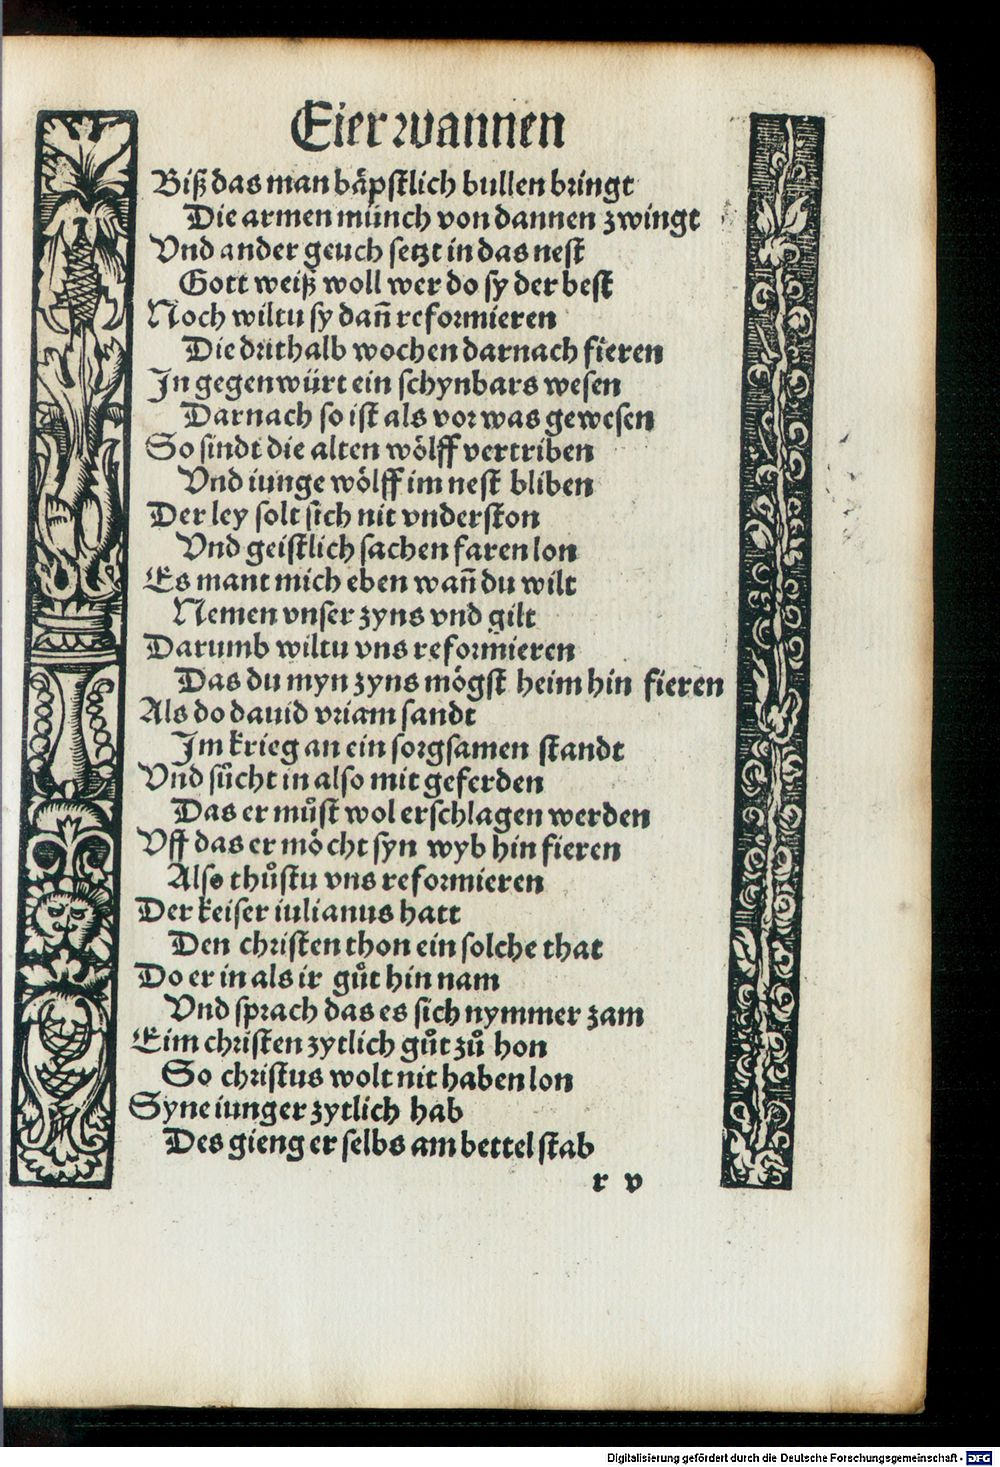 Eier wannen
Biß das man bäpstlich bullen bringt
Die armen münch von dannen zwingt
Vnd ander geuch setzt in das nest
Gott weiß woll wer do sy der best
Noch wiltu sy dañ reformieren
Die drithalb wochen darnach fieren
In gegenwürt ein schynbars wesen
Darnach so ist als vor was gewesen
So sindt die alten wölff vertriben
Vnd iunge wölff im nest bliben
Der ley solt sich nit vnderston
Vnd geistlich sachen faren lon
Es mant mich eben wañ du wilt
Nemen vnser zyns vnd gilt
Darumb wiltu vns reformieren
Das du myn zyns mögst heim hin fieren
Als do dauid vriam sandt
Im krieg an ein sorgsamen standt
Vnd sůcht in also mit geferden
Das er můst wol erschlagen werden
Vff das er möcht syn wyb hin fieren
Also thůstu vns reformieren
Der keiser iulianus hatt
Den christen thon ein solche that
Do er in als ir gůt hin nam
Vnd sprach das es sich nymmer zam
Eim christen zytlich gůt zů hon
So christus wolt nit haben lon
Syne iunger zytlich hab
Des gieng er selbs am bettel stab
r v
Digitalisierung gefördert durch die Deutsche Forschungsgemeinschaft - DFG